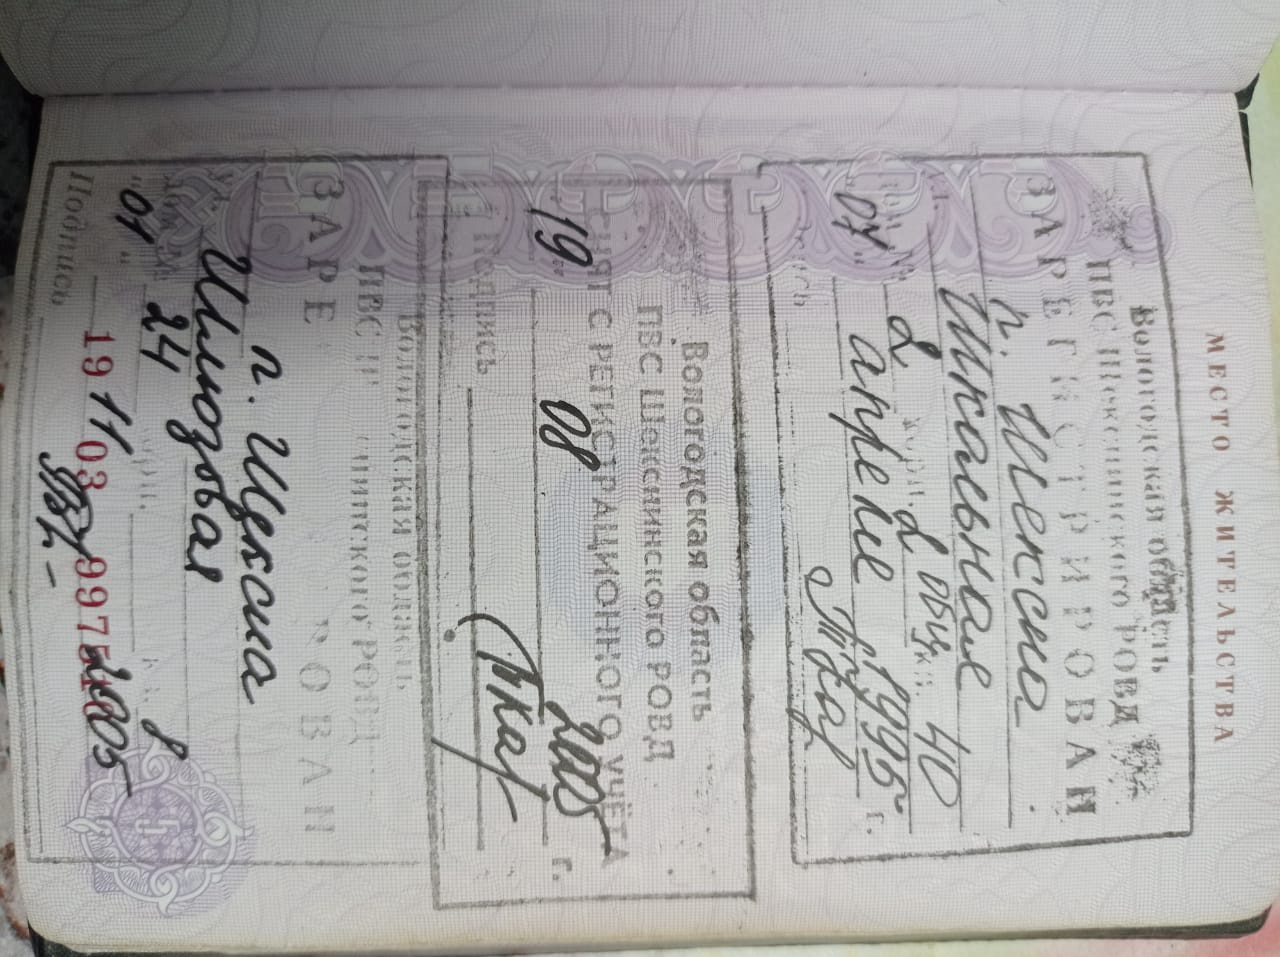 МЕСТО ЖИТЕЛЬСТВА
Вологодская область
ПВС Шекснинского РОВД
ЗАРЕГИСТРИРОВАН
п. Шексна
Школьная
2 корп. 2 общ кв. 40
"04" апреля 1995 г.
Вологодская область
ПВС Шекснинского РОВД
СНЯТ С РЕГИСТРАЦИОННОГО УЧЁТА
"19" 08 2005 г.
Подпись
Вологодская область
ПВС Шекснинского РОВД
ЗАРЕ РОВАН
п. Шексна
ул.
дом № 24 корп. кв. 8
"01" 11 2005
19 03
Подпись